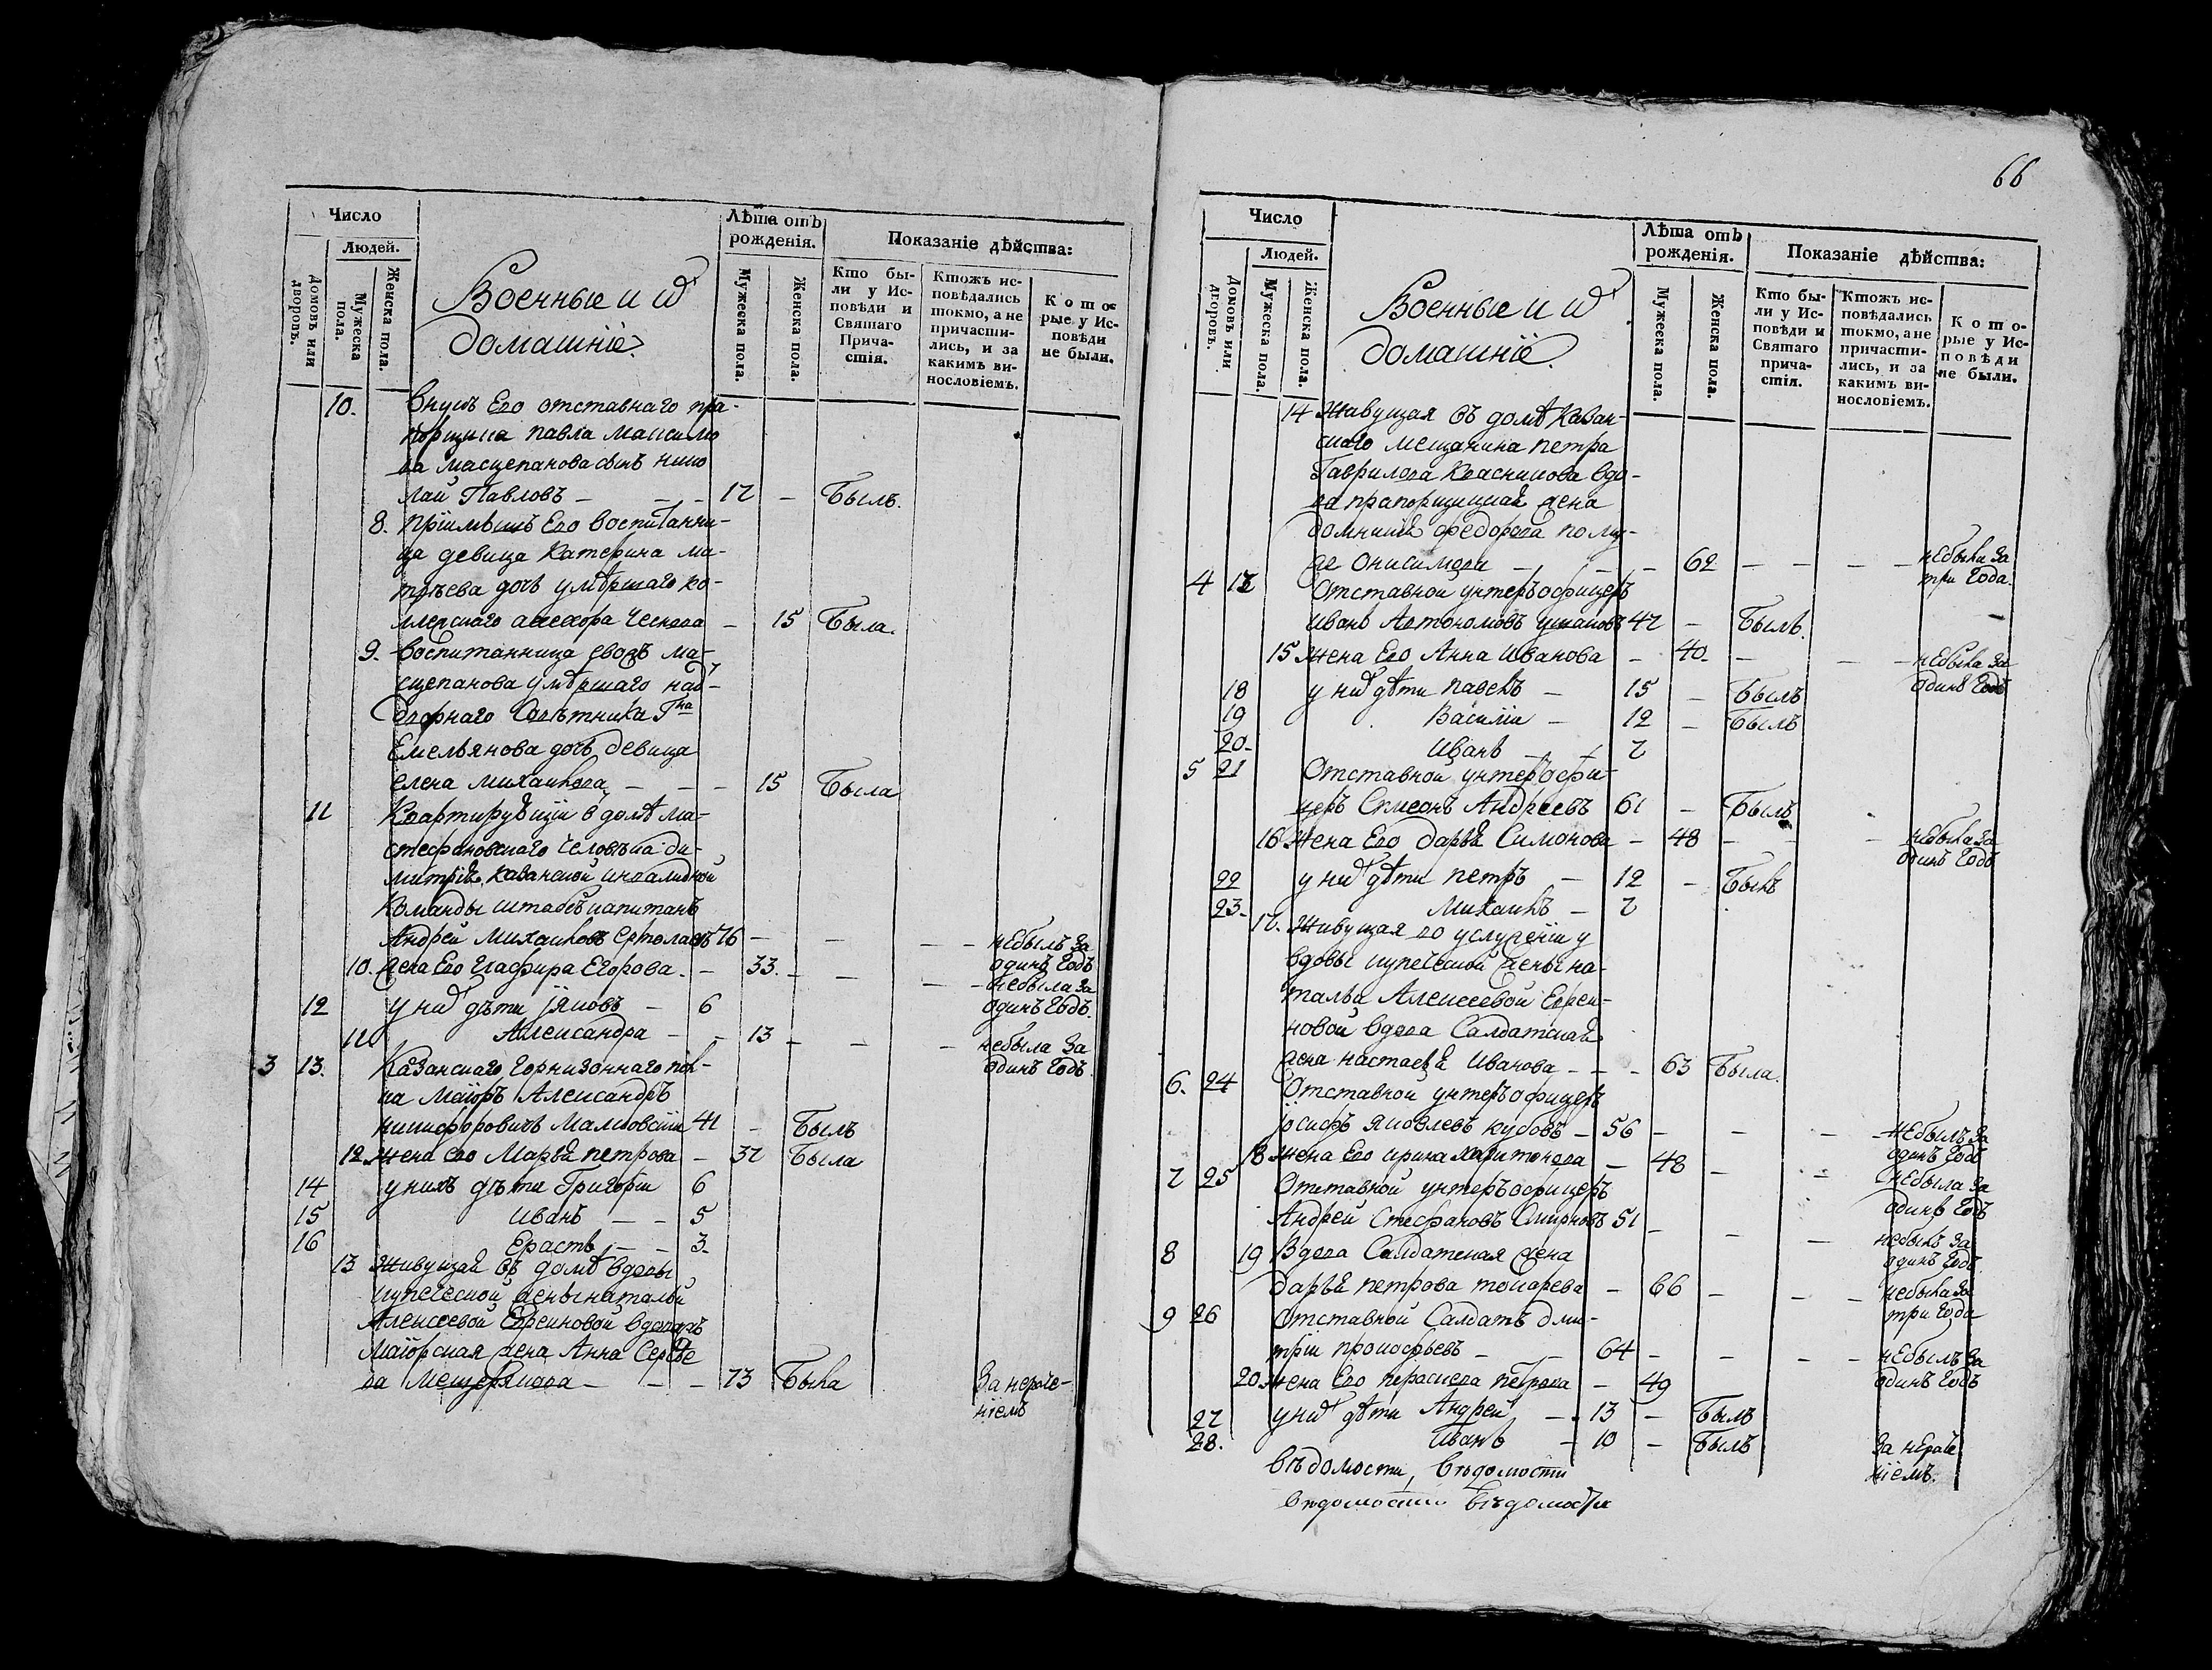 Число
Людей.
Домовъ или дворовъ.
Мужеска пола.
Женска пола.
Военные и ихъ
домашнiе.
Лѣта отъ рожденiя.
Мужеска пола.
Женска пола.
Показанiе дѣйства:
Кто бы-
ли у Ис-
повѣди и
Святаго
Прича-
стiя.
Ктожъ ис-
повѣдались
токмо, а не
причасти-
лись, и за
какимъ ви-
нословiемъ.
Кото-
рые у Ис-
повѣди
не были.
10. Внукъ Его отставнаго пра-
порщика павла Максимо
ва Масцепанова сынъ нико
лай Павловъ - - - 17 - Былъ.
8. Прiимышъ Его воспитанни-
ца девица Катерина
дочь умѣршаго ко-
ллежскаго - 15 Была.
9. воспитанница
сцепанова умѣршаго над-
ворнаго Совѣтника Гна
Емельянова дочь девица
елена михаилова - - - 15 Была
11 Квартирующiи в домѣ ма-
стефановскаго человѣка ди-
митрiя казанской инвалидной
Команды штабсъ капитанъ
Андрей Михаиловъ 76 - - - - небылъ за
одинъ годъ
10. жена Его Глафира Егорова. - 33. - - - - небыла за
одинъ годъ.
12 у них дѣти iяковъ - 6
11 Александра - - 13 - - - небыла за
одинъ годъ.
3 13. Казанскаго Горнизоннаго пол-
ка Маiоръ Александръ
никифоровичъ 41 - Былъ
12 жена его Марья петрова - 37 Была
14 у нихъ дѣти Григорiи 6
15 Иванъ - - 5
16 Ерастъ - - 3.
13 живущая въ домѣ вдовы
купеческой жены натальи
Алексеевой Евреиновой вдова
Маiорская жена Анна Сергѣе
ва - - - 73 Была
За нераче-
нiемъ
66
Число
Людей.
Домовъ или дворовъ.
Мужеска пола.
Женска пола.
Военные и ихъ
домашнiе.
Лѣта отъ рожденiя.
Мужеска пола.
Женска пола.
Показанiе дѣйства:
Кто бы-
ли у Ис-
повѣди и
Святаго
прича-
стiя.
Ктожъ ис-
повѣдались
токмо, а не
причасти-
лись, и за
какимъ ви-
нословiемъ.
Кото-
рые у Ис-
повѣди
не были.
14 живущая въ домѣ казан-
скаго мещанина петра
Гаврилова Красникова вдо-
ва прапорщицкая жена
домникiя федорова по му-
же Онисимова - - - 62 - - - - небыла за
три года.
4 17 Отставной унтеръофицеръ
иванъ Автономовъ ушаковъ 47 - Былъ.
15 жена Его Анна иванова - 40 - - - небыла за
одинъ годъ
18 у них дѣти павелъ - 15 - Былъ
19 Василiи - 12 - Былъ
20. Иванъ - - 7
5 21 Отставной унтеръофи-
церъ Симеонъ Андреевъ 61 - Былъ
16 жена Его дарья Симонова - 48 - - - небыла за
одинъ годъ
22 у них дѣти петръ - 12 - Былъ
23. Михаилъ - 7
17. живущая во услуженiи у
вдовы купеческой жены на-
тальи Алексеевой Евреи-
новой вдова Салдатская
жена настасья Иванова - - - 63 Была.
6. 24 Отставной унтеръофицеръ
iосифъ яковлевъ кубовъ - 56 - - - - небылъ за
одинъ годъ
18 жена Его ирина харитонова - 48 - - небыла за
одинъ годъ
7 25 Отставной унтеръофицеръ
Андрей Стефановъ Смирновъ 51 - - - небылъ за
одинъ годъ
8 19 Вдова Салдатская жена
дарья петрова токарева - 66 - - - небыла за
три года
9 26 Отставной Салдатъ дми-
трiи прокофьевъ - - 64 - - - - небылъ за
одинъ годъ
20 жена Его параскева петрова - 49
27 у них дѣти Андрей - - 13 - Былъ
28. Иванъ - 10 - Былъ
За нераче
нiемъ.
вѣдомости, вѣдомости
вѣдомости вѣдомости